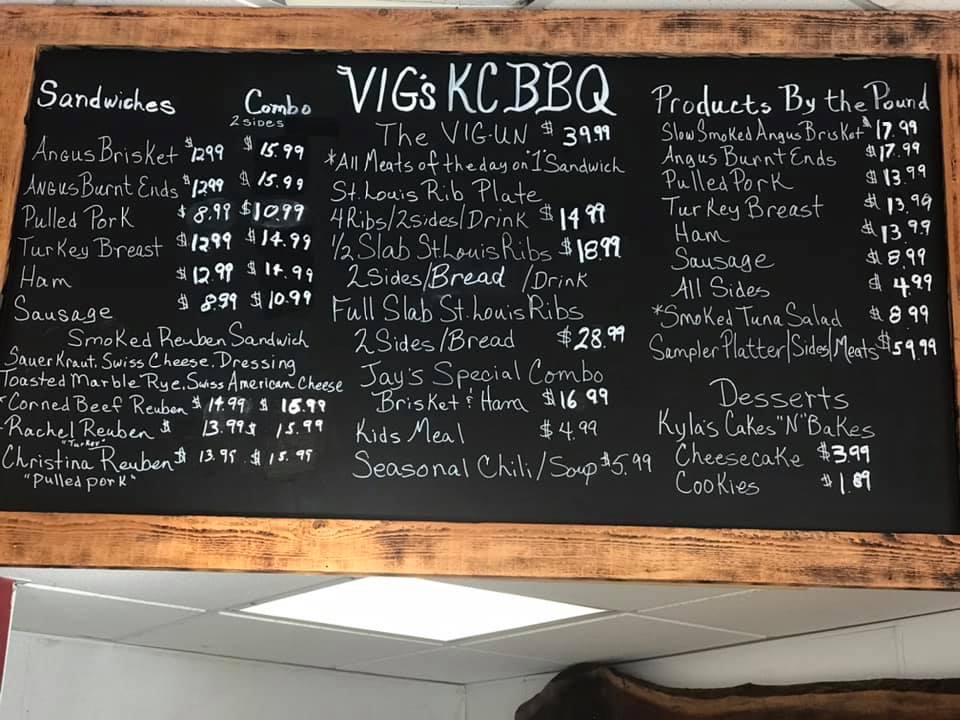 VIG's KC BBQ
Sandwiches Combo
2 sides
Angus Brisket $1299 $15.99
Angus Burnt Ends $1299 $15.99
Pulled Pork $8.99 $10.99
Turkey Breast $1299 $14.99
Ham $12.99 $14.99
Sausage $8.99 $10.99
Smoked Reuben Sandwich
Sauer Kraut, Swiss Cheese, Dressing
Toasted Marble Rye, Swiss American Cheese
Corned Beef Reuben $14.99 $16.99
Rachel Reuben $13.99 $15.99
"Turkey"
Christina Reuben $13.95 $15.95
"Pulled pork"
The VIG-UN $39.99
*All Meats of the day on "1" Sandwich
St. Louis Rib Plate
4 Ribs/2 sides/Drink $14 99
1/2 Slab St. Louis Ribs $18.99
2 Sides/Bread /Drink
Full Slab St. Louis Ribs
2 Sides/Bread $28.99
Jay's Special Combo
Brisket & Ham $16 99
Kids Meal $4.99
Seasonal Chili/Soup $5.99
Products By the Pound
Slow Smoked Angus Brisket $17.99
Angus Burnt Ends $17.99
Pulled Pork $13.99
Turkey Breast $13.99
Ham $13.99
Sausage $8.99
All Sides $4.99
*Smoked Tuna Salad $8.99
Sampler Platter/Sides/Meats $59.99
Desserts
Kyla's Cakes "N" Bakes
Cheesecake $3.99
Cookies $1.89